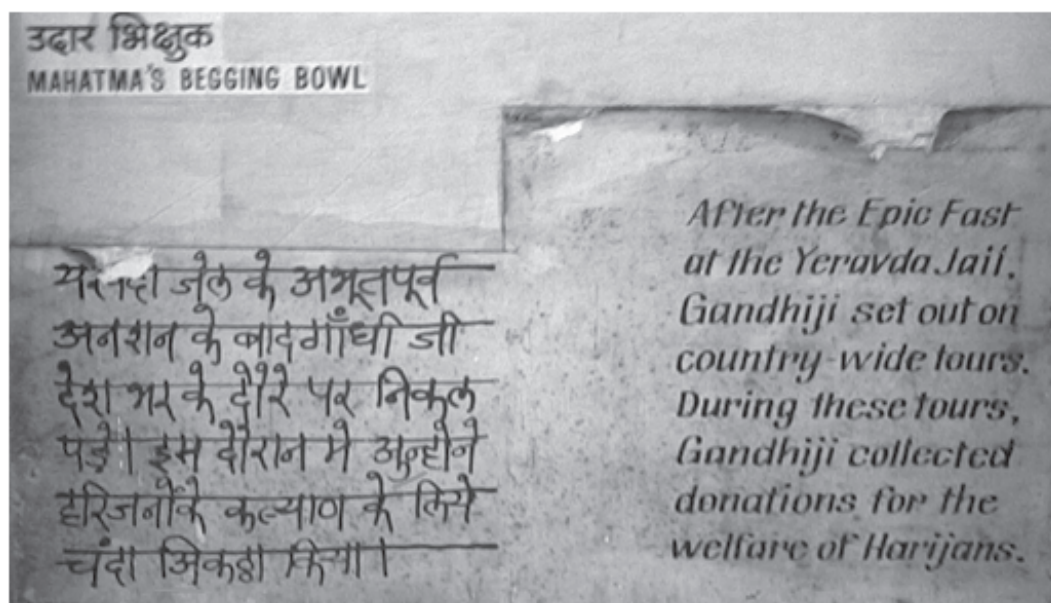 उदार भिक्षुक
MAHATMA'S BEGGING BOWL
जेल के अभूतपूर्व
अनशन के बाद गाँधी जी
देश भर के दौरे पर निकल
पड़े। इस दौरान मे अुन्होने
हरिजनोंके कल्याण के लिये
चंदा किया।
After the Epic Fast
at the Yeravda Jail,
Gandhiji set out on
country-wide tours.
During these tours,
Gandhiji collected
donations for the
welfare of Harijans.